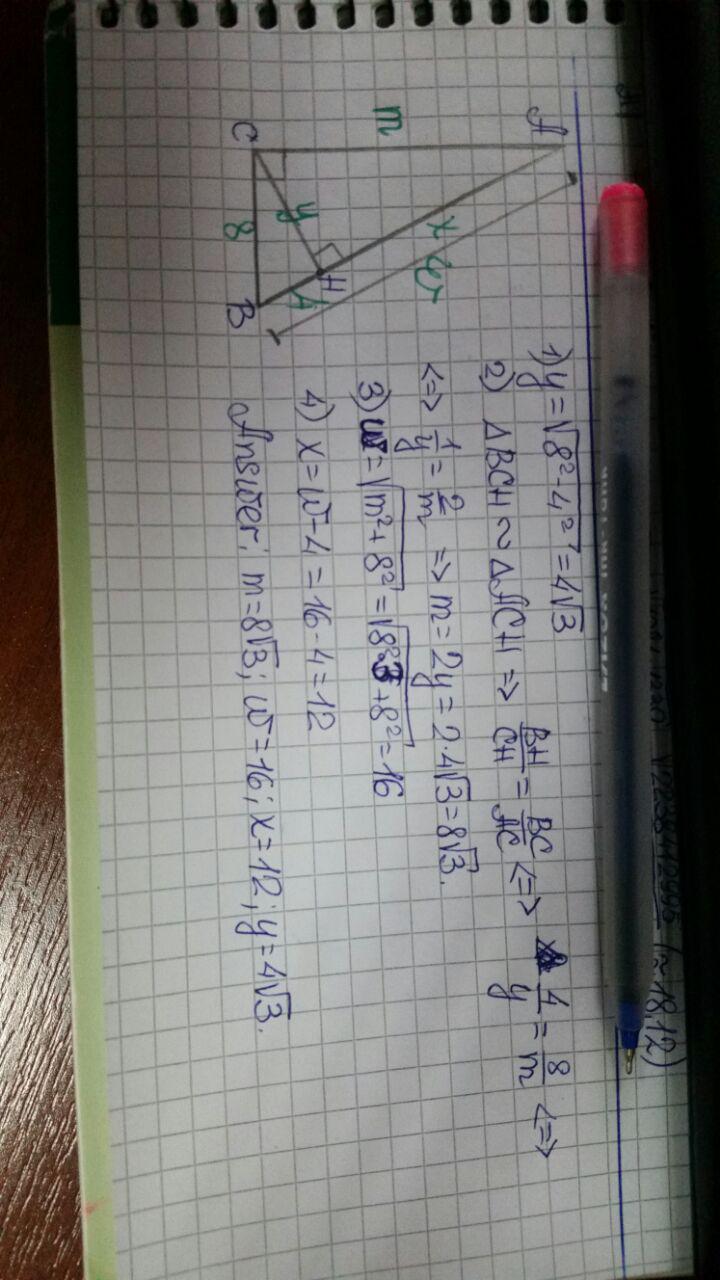 A
m
x
w
y
H
4
C
8
B
1) y = √(8² - 4²) = 4√3
2) △BCH ~ △ACH => BH/CH = BC/AC <=> 4/y = 8/m <=>
<=> 1/y = 2/m => m = 2y = 2·4√3 = 8√3.
3) w = √(m² + 8²) = √(8²·3 + 8²) = 16
4) x = w - 4 = 16 - 4 = 12
Answer: m = 8√3; w = 16; x = 12; y = 4√3.